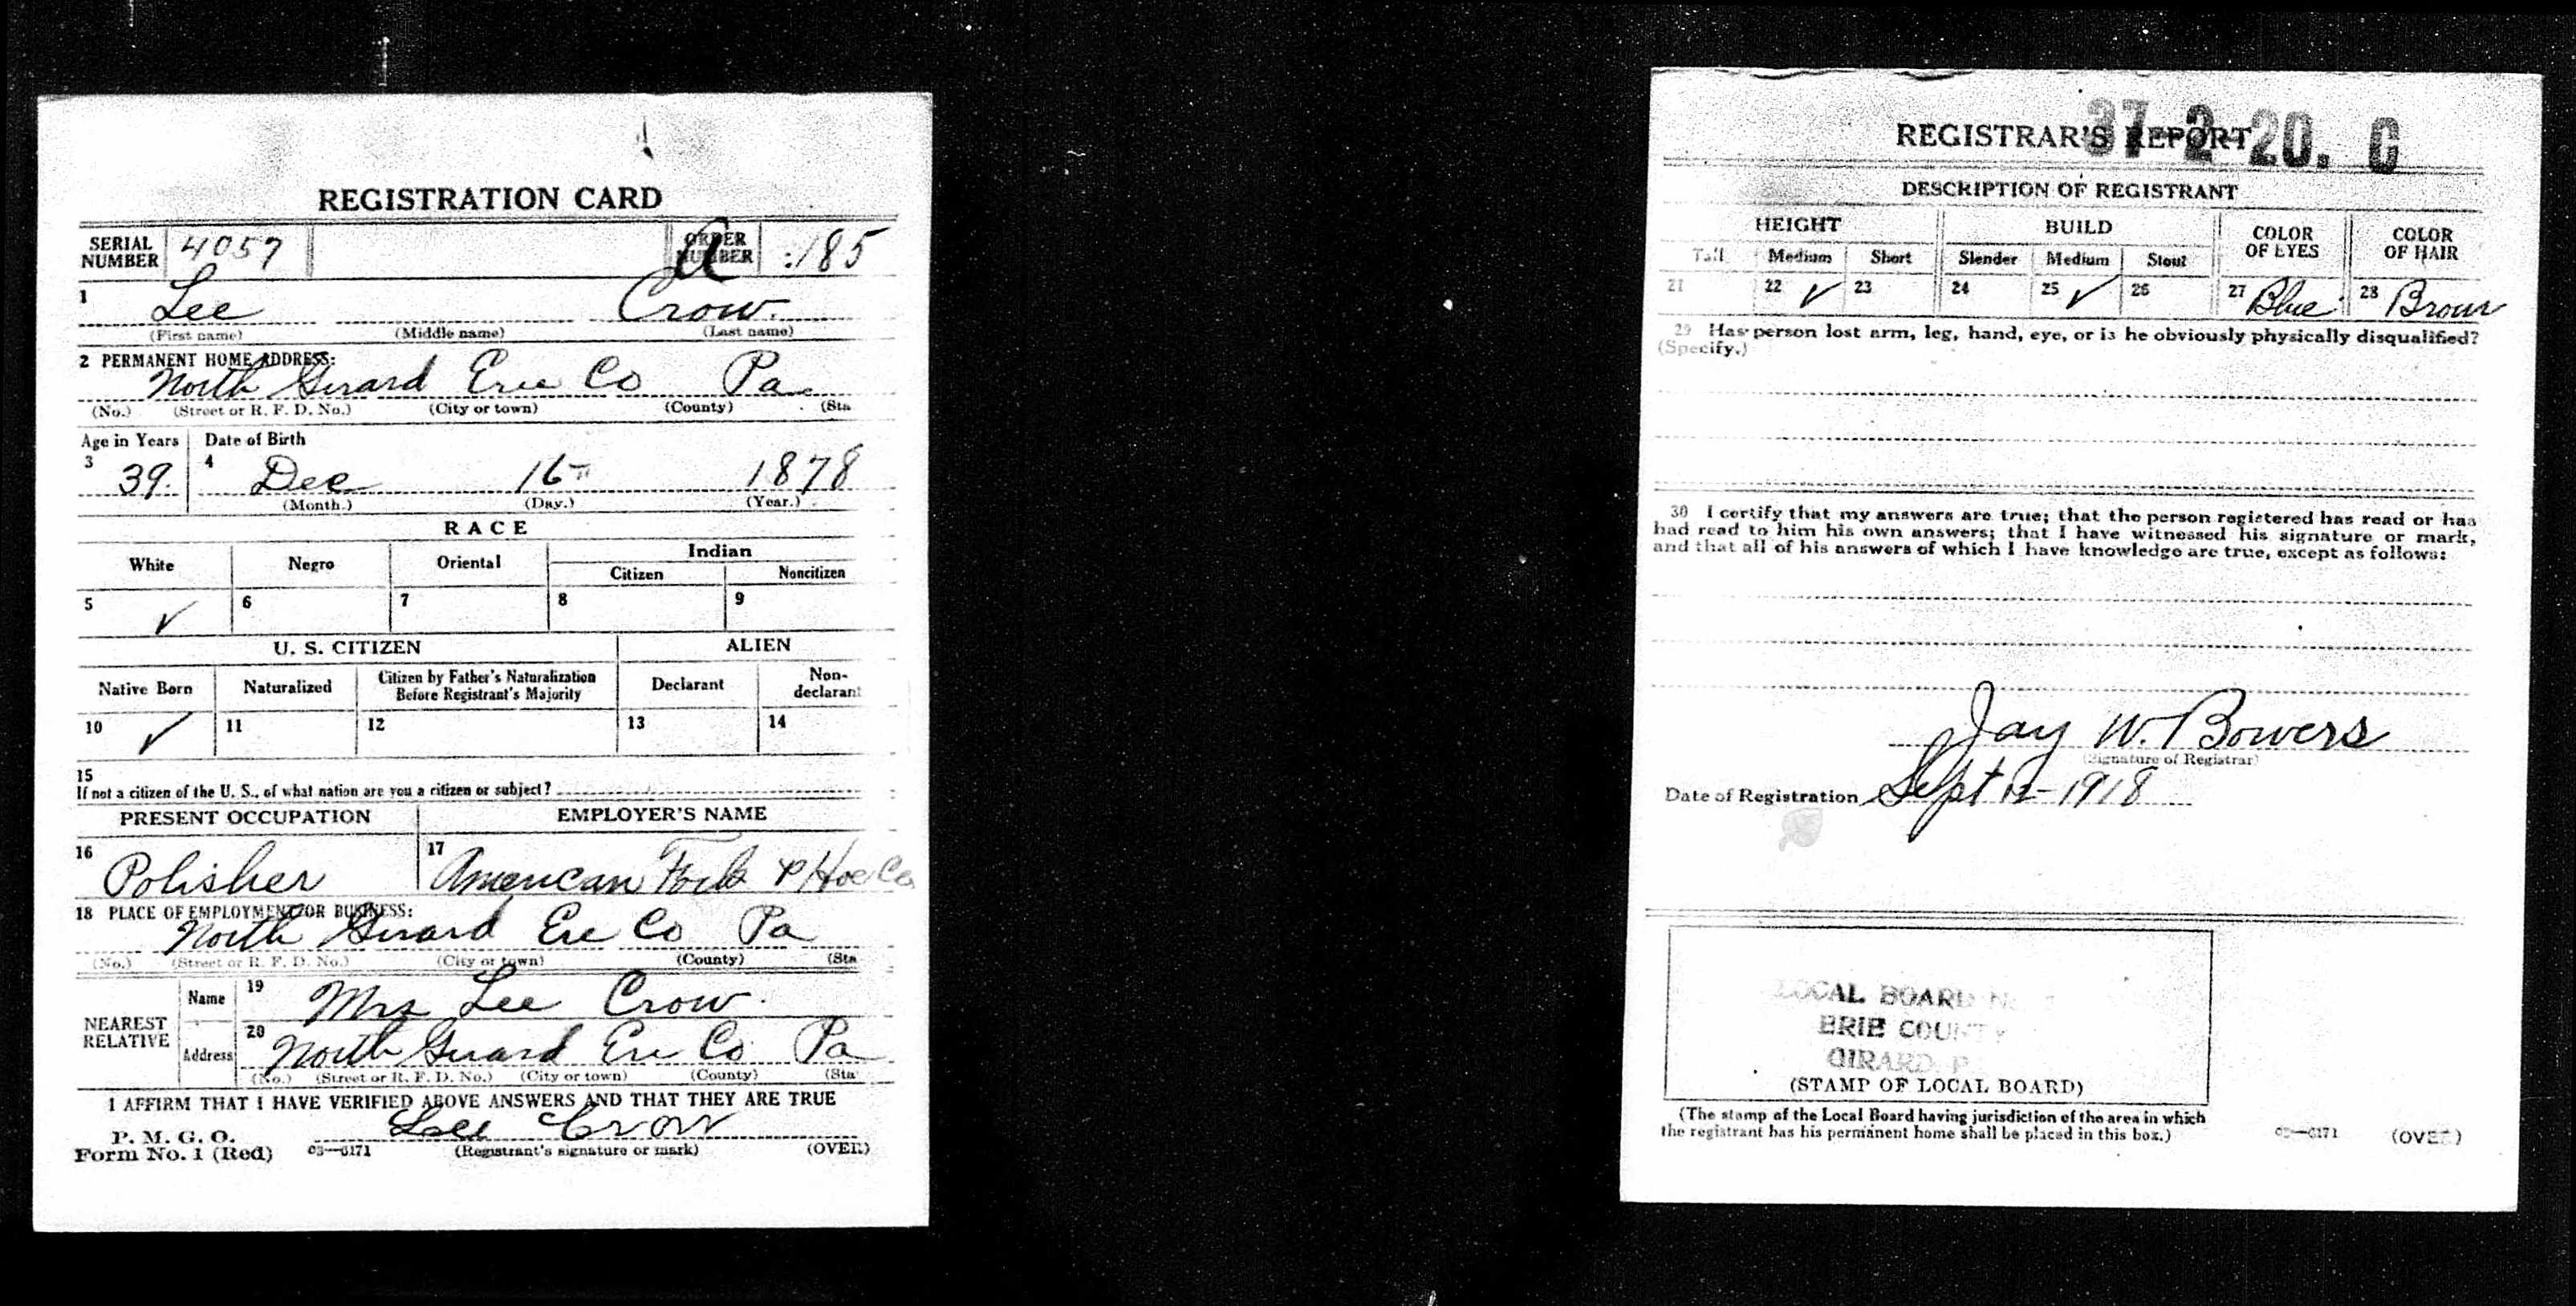 REGISTRATION CARD
SERIAL NUMBER 4057 ORDER NUMBER A 185
1 Lee Crow.
(First name) (Middle name) (Last name)
2 PERMANENT HOME ADDRESS:
North Girard Erie Co Pa
(No.) (Street or R. F. D. No.) (City or town) (County) (Sta
Age in Years Date of Birth
3 39. 4 Dec 16 1878
(Month.) (Day.) (Year.)
RACE
White Negro Oriental Indian
Citizen Noncitizen
5 ✓ 6 7 8 9
U. S. CITIZEN ALIEN
Native Born Naturalized Citizen by Father's Naturalization Before Registrant's Majority Declarant Non-declarant
10 ✓ 11 12 13 14
15
If not a citizen of the U. S., of what nation are you a citizen or subject?
PRESENT OCCUPATION EMPLOYER'S NAME
16 Polisher 17 American Fork & Hoe Co
18 PLACE OF EMPLOYMENT OR BUSINESS:
North Girard Erie Co Pa
(No.) (Street or R. F. D. No.) (City or town) (County) (Sta
NEAREST RELATIVE Name 19 Mrs Lee Crow.
Address 20 North Girard Erie Co Pa
(No.) (Street or R. F. D. No.) (City or town) (County) (Sta
I AFFIRM THAT I HAVE VERIFIED ABOVE ANSWERS AND THAT THEY ARE TRUE
Lee Crow
P. M. G. O.
Form No. 1 (Red) 03—6171 (Registrant's signature or mark) (OVER)
37-2-20. C
REGISTRAR'S REPORT
DESCRIPTION OF REGISTRANT
HEIGHT BUILD COLOR OF EYES COLOR OF HAIR
Tall Medium Short Slender Medium Stout
21 22 ✓ 23 24 25 ✓ 26 27 Blue 28 Brown
29 Has person lost arm, leg, hand, eye, or is he obviously physically disqualified?
(Specify.)
30 I certify that my answers are true; that the person registered has read or has
had read to him his own answers; that I have witnessed his signature or mark,
and that all of his answers of which I have knowledge are true, except as follows:
Jay W. Bowers
(Signature of Registrar)
Date of Registration Sept 12-1918
LOCAL BOARD
ERIE COUNTY
GIRARD, P
(STAMP OF LOCAL BOARD)
(The stamp of the Local Board having jurisdiction of the area in which
the registrant has his permanent home shall be placed in this box.)
03—6171 (OVER)